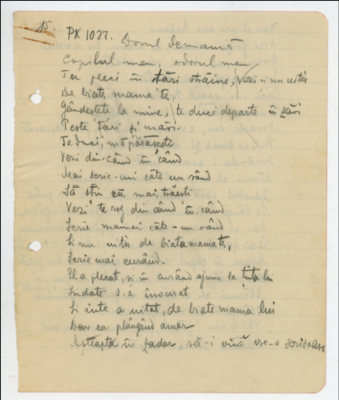 15.
PK 1027.
Dorul Iemamă
Copilul meu, odorul meu
Tu pleci în țări străine, Vezi să nu uiți
De biata mama te,
Gândește te la mine, te duci departe în țări
Peste țări și mări
Te duci, mă părăsești
Vezi din când în când
Mai scrie-mi câte un rând
Să știu că mai trăești
Vezi te rog din când în când
Scrie mamei câte-un rând
Și nu uita de biata mamate,
Scrie mai curând.
El a plecat, și în curând ajuns la
Îndată s-a însurat
Și a uitat, de biata mama lui
Dar ea plângând amar
Așteaptă în zadar, să-i vină vre-o scrisoare